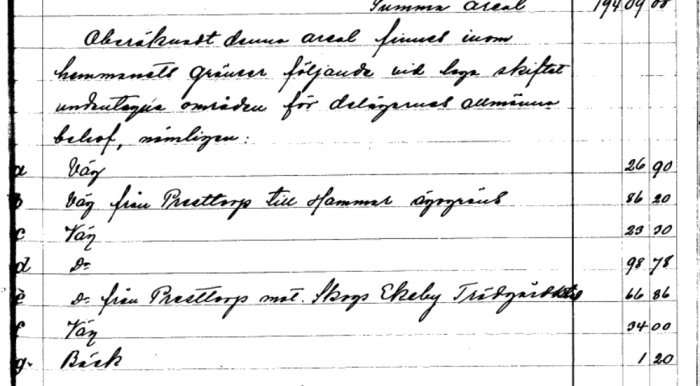 Summa areal 194 09 00
Oberäknadt denna areal finnes inom
hemmanets gränser följande vid laga skiftet
undantagna områden för delägarnes allmänna
behof, nämligen:
a Väg 26 90
b Väg från Presttorp till Hammar ägogräns 86 20
c Väg 23 30
d Do 98 78
e Do från Presttorp mot Skogs Ekeby 66 86
f Väg 34 00
g. Bäck 1 20